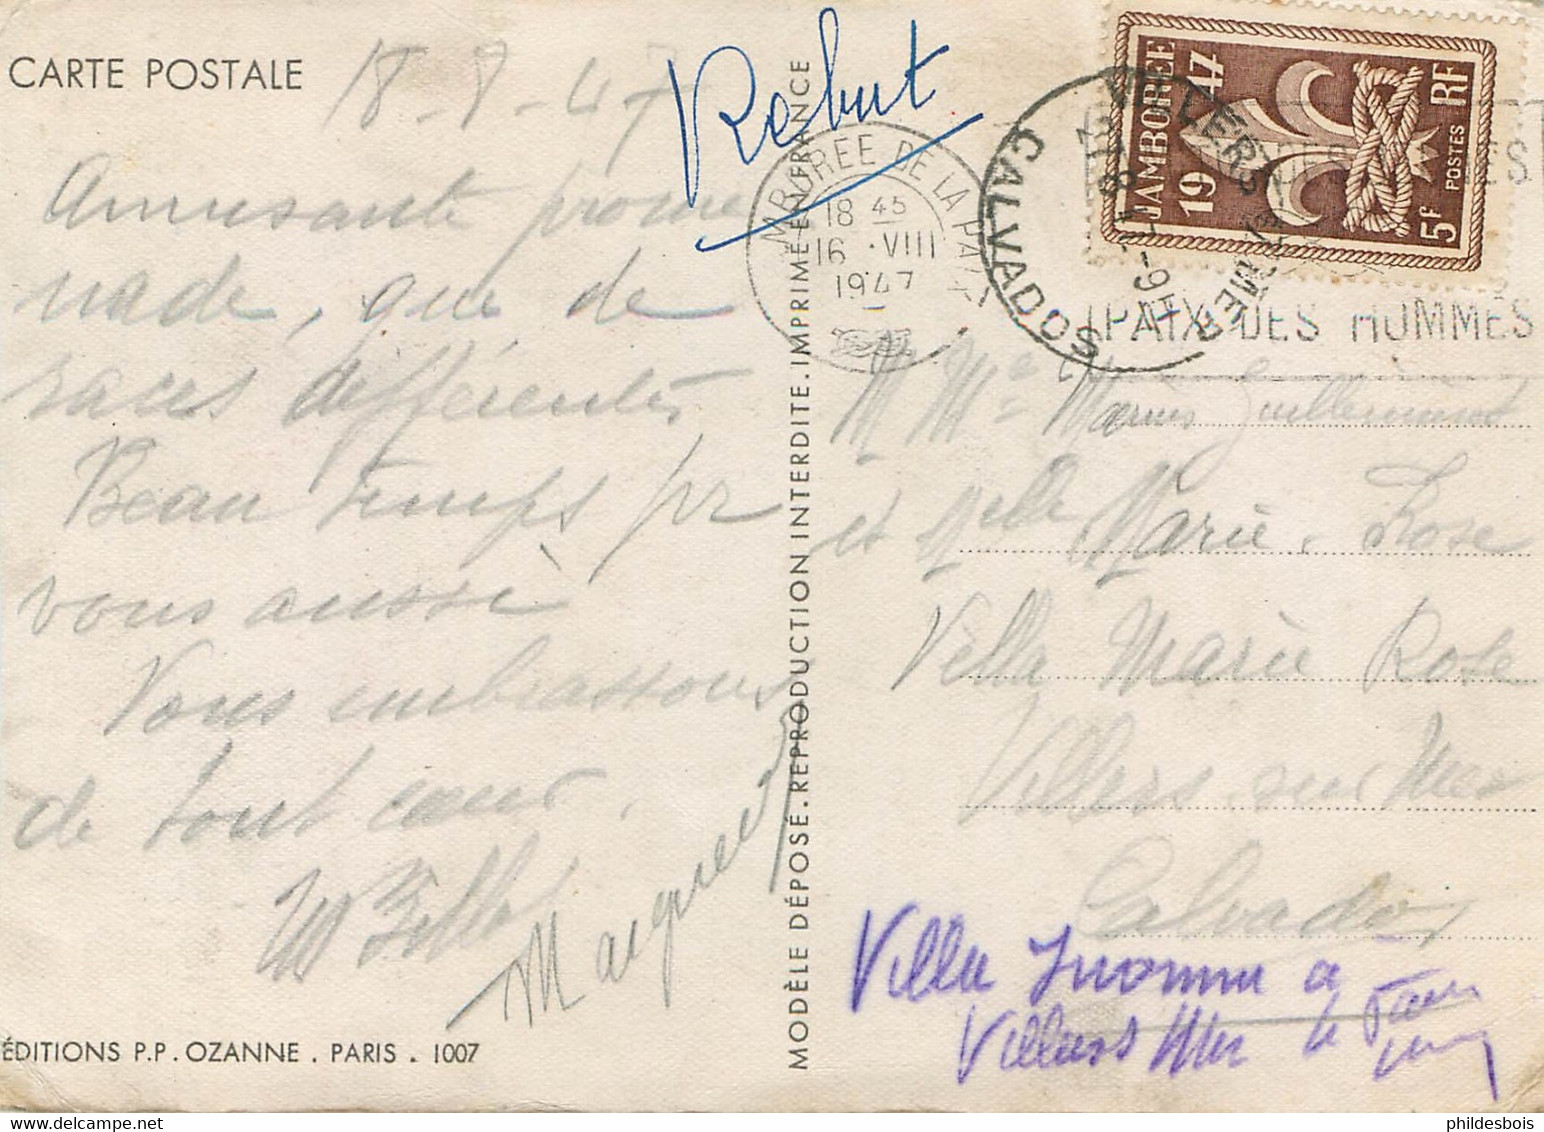 CARTE POSTALE
18-8-47
Amusante prome
nade, que de
races différentes
Beau temps pr
vous aussi
Vous embrassons
de tout cœur.
ÉDITIONS P.P. OZANNE . PARIS . 1007
MODÈLE DÉPOSÉ. REPRODUCTION INTERDITE. IMPRIMÉ EN FRANCE
Rebut
JAMBOREE DE LA PAIX
18 45
16 ·VIII
1947
PAIX DES HOMMES
JAMBOREE
19 47
5F POSTES RF
VILLERS S MER
CALVADOS
M Me Marius Guilleminot
et Melle Marie-Rose
Villa Marie Rose
Villers sur Mer
Calvados
Villa Inconnu a
Villers Mer le
philesdebois.delcampe.net